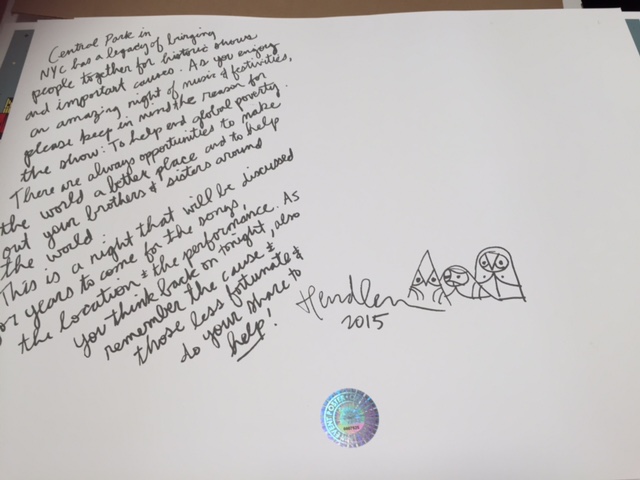 Central Park in
NYC has a legacy of bringing
people together for historic shows
and important causes. As you enjoy
an amazing night of music & festivities,
please keep in mind the reason for
the show: To help end global poverty.
There are always opportunities to make
the world a better place and to help
out your brothers & sisters around
the world.
This is a night that will be discussed
for years to come for the songs,
the location & the performance. As
you think back on tonight, also
remember the cause &
those less fortunate &
do your share to
help!
2015